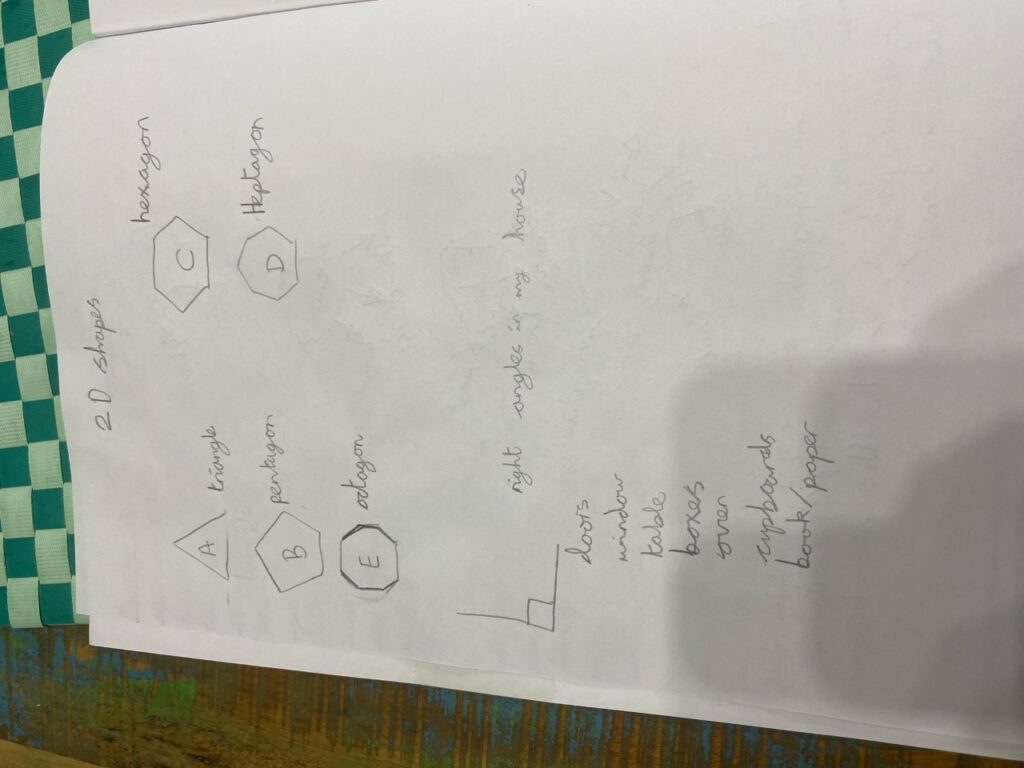 2D shapes
A triangle
C hexagon
B pentagon
D Heptagon
E octagon
right angles in my house
doors
window
table
boxes
oven
cupboards
book/paper